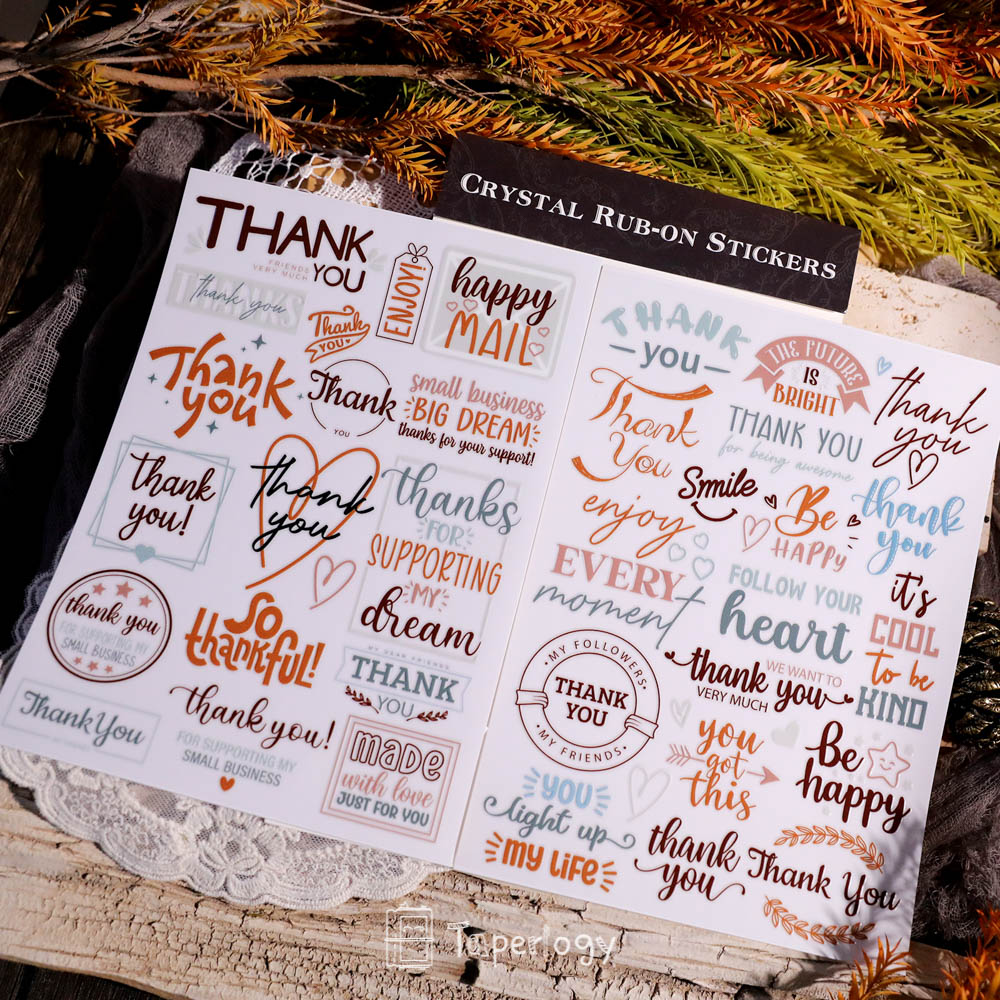 CRYSTAL RUB-ON STICKERS
THANK
FRIENDS
VERY MUCH
YOU
THANKS
thank you
Thank
YOU
ENJOY!
happy
MAIL
Thank
you
Thank
YOU
small business
BIG DREAM
thanks for your support!
thank
you!
thank
you
thanks
FOR
SUPPORTING
MY
dream
thank you
FOR SUPPORTING MY
SMALL BUSINESS
So
thankful!
MY DEAR FRIENDS
THANK
YOU
Thank You
thank you!
FOR SUPPORTING MY
SMALL BUSINESS
MADE
with love
JUST FOR YOU
THANK
you
THE FUTURE
IS
BRIGHT
thank
you
Thank
You
THANK YOU
for being awesome
Smile
Be
HAPPY
thank
you
enjoy
EVERY
moment
FOLLOW YOUR
heart
it's
COOL
to be
KIND
MY FOLLOWERS
THANK
YOU
MY FRIENDS
WE WANT TO
thank you
VERY MUCH
you
got
this
Be
happy
YOU
light up
MY LIFE
thank
you
Thank You